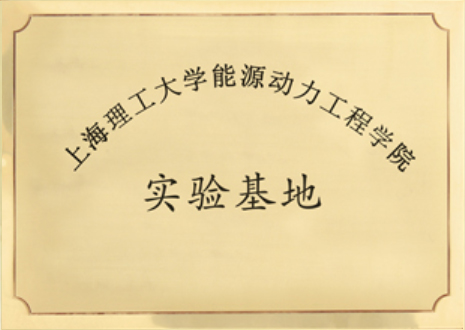 上海理工大学能源动力工程学院
实验基地